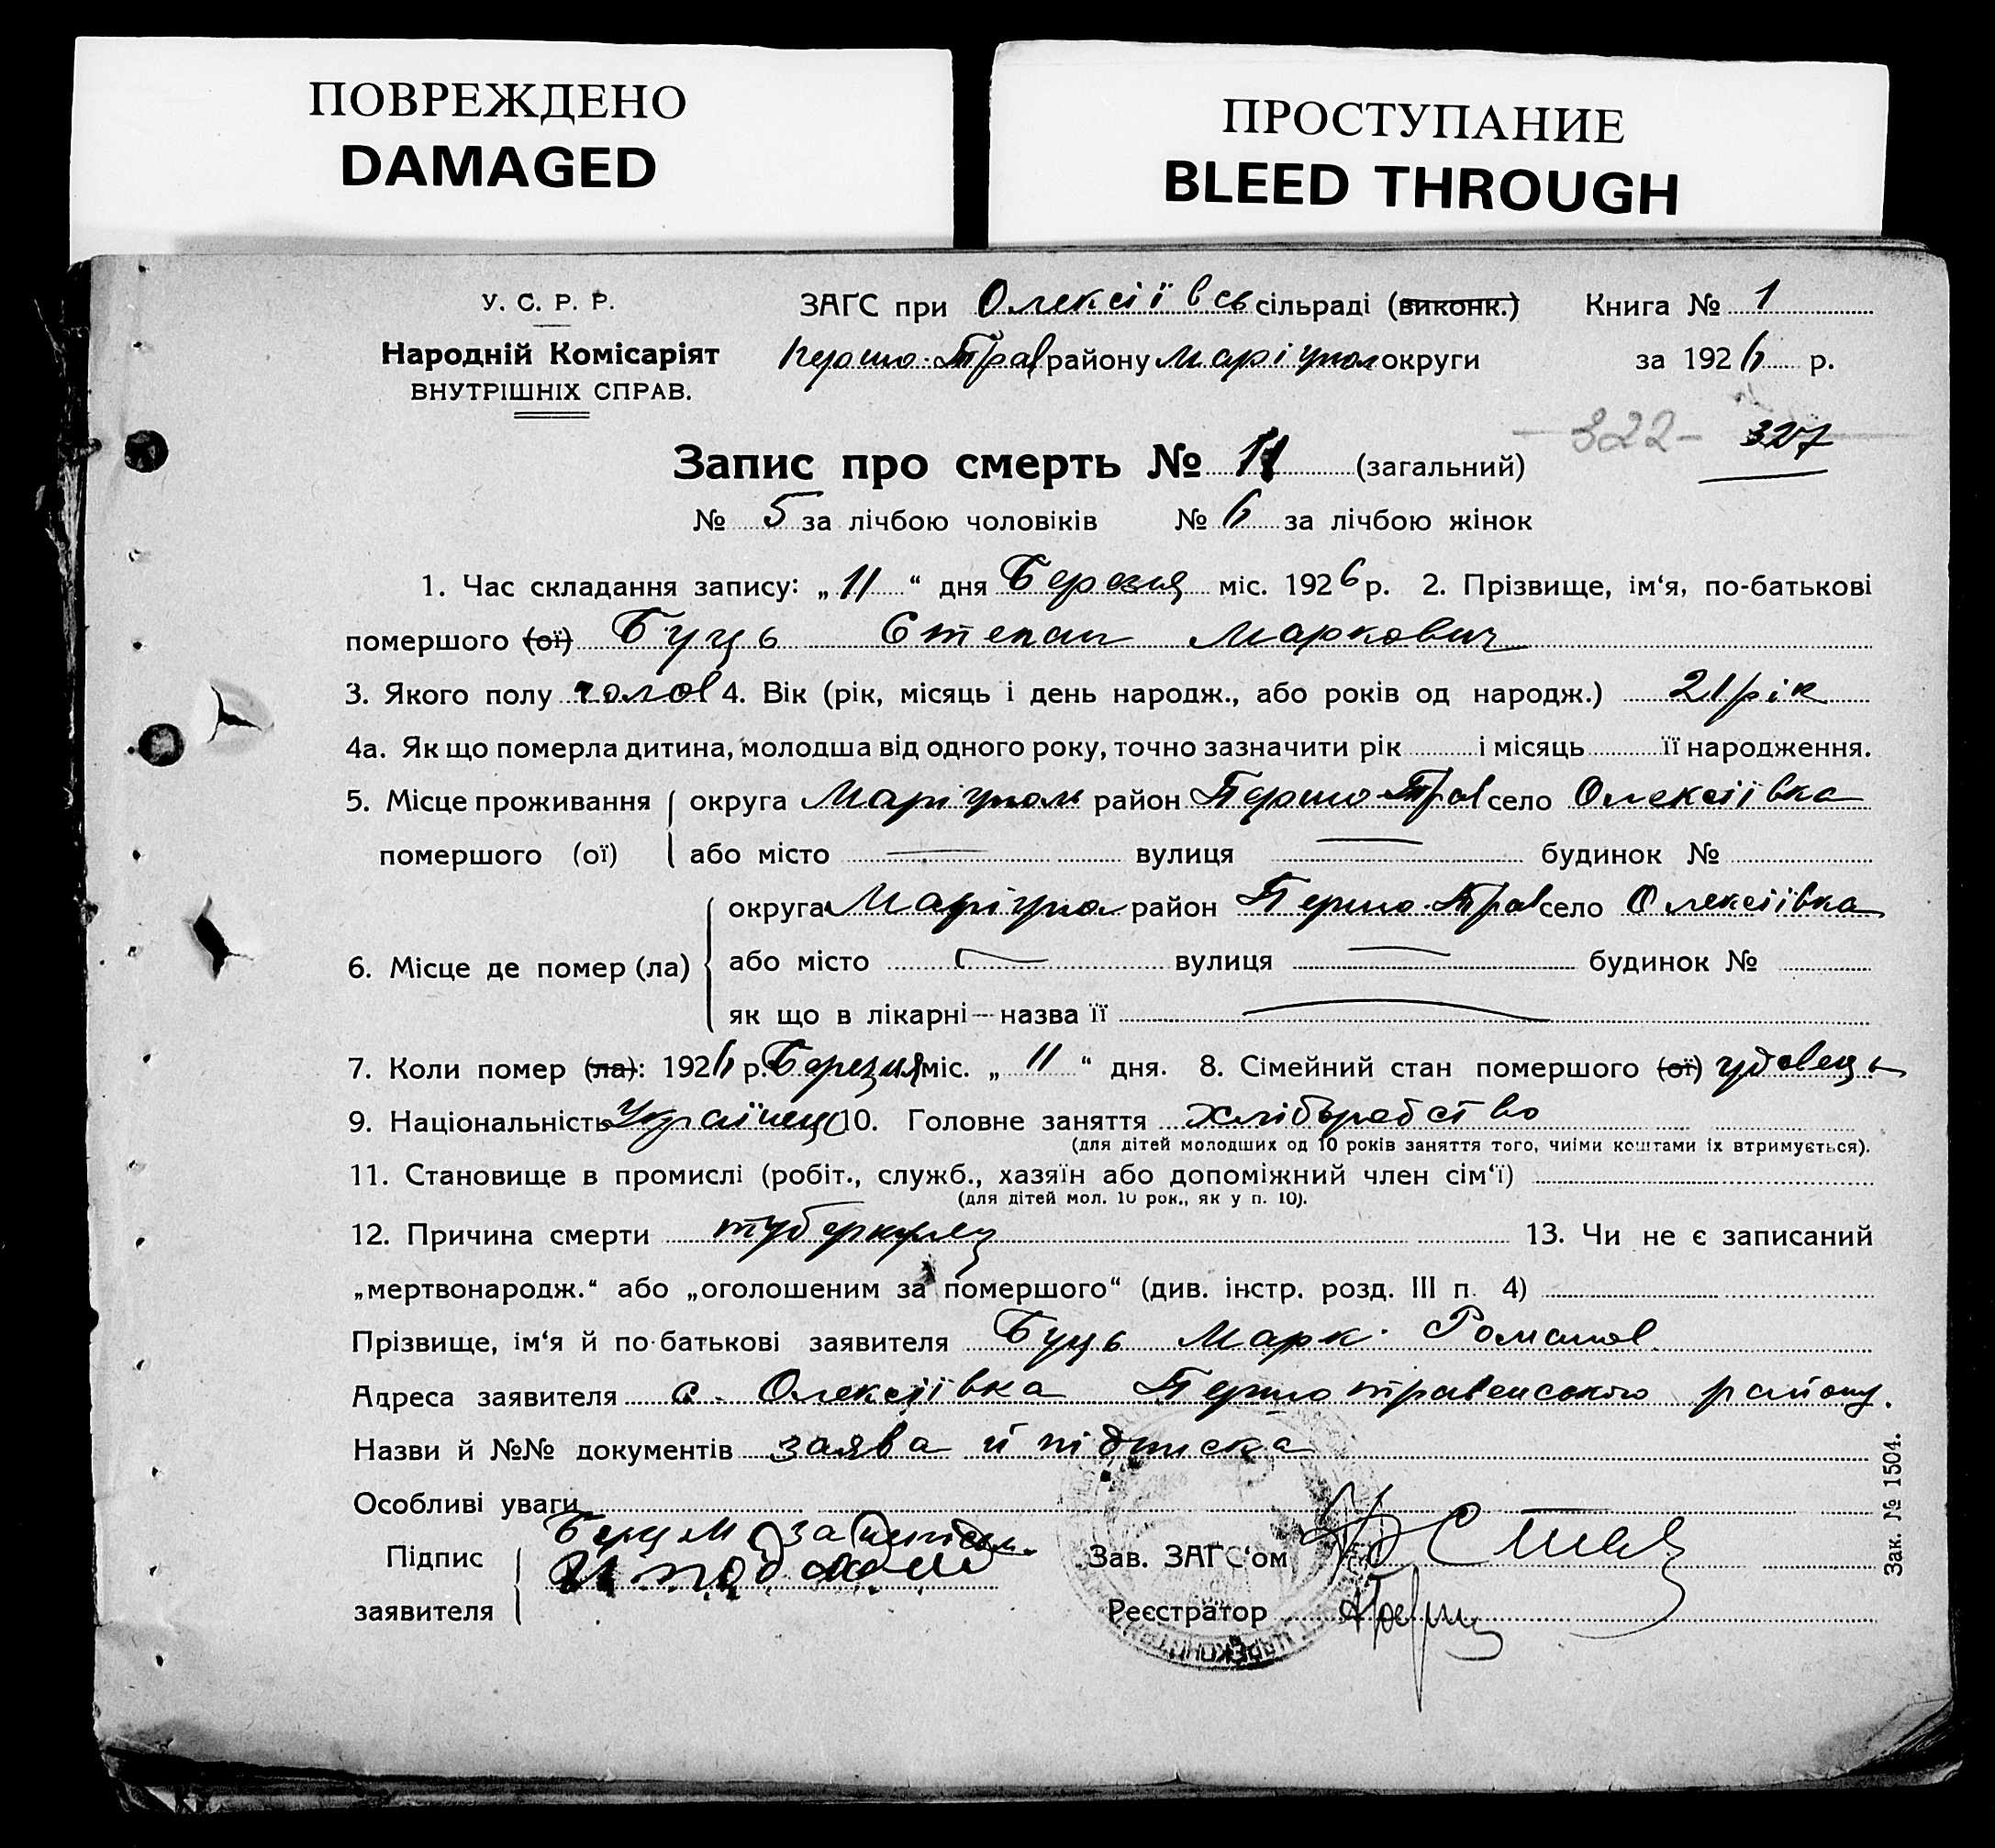 ПОВРЕЖДЕНО
DAMAGED
ПРОСТУПАНИЕ
BLEED THROUGH
У. С. Р. Р.
Народній Комісаріят
ВНУТРІШНІХ СПРАВ.
ЗАГС при Олексіївсь сільраді (виконк.) Книга № 1
Першо-Трав району Маріупол округи за 1926 р.
322 327
Запис про смерть № 11 (загальний)
№ 5 за лічбою чоловіків № 6 за лічбою жінок
1. Час складання запису: „11“ дня Березня міс. 1926 р. 2. Прізвище, ім‘я, по-батькові
помершого (ої) Буць Степан Маркович
3. Якого полу чолов 4. Вік (рік, місяць і день народж., або років од народж.) 21 рік
4а. Як що померла дитина, молодша від одного року, точно зазначити рік і місяць її народження.
5. Місце проживання округа Маріуполь район Першо-Трав село Олексіївка
помершого (ої) або місто вулиця будинок №
округа Маріупол район Першо-Трав село Олексіївка
6. Місце де помер (ла) або місто вулиця будинок №
як що в лікарні—назва її
7. Коли помер (ла): 1926 р. Березня міс. „11“ дня. 8. Сімейний стан помершого (ої) удовець
9. Національність Українец 10. Головне заняття хліборобство
(для дітей молодших од 10 років заняття того, чиїми коштами їх втримується).
11. Становище в промислі (робіт., служб., хазяїн або допоміжний член сім‘ї)
(для дітей мол. 10 рок., як у п. 10).
12. Причина смерти туберкульоз 13. Чи не є записаний
„мертвонародж.“ або „оголошеним за помершого“ (див. інстр. розд. III п. 4)
Прізвище, ім‘я й по-батькові заявителя Буць Марк Романов
Адреса заявителя с. Олексіївка Першотравенського району.
Назви й №№ документів заява й підписка
Особливі уваги
Підпис
заявителя
Зав. ЗАГС‘ом
Реєстратор
Зак. № 1504.